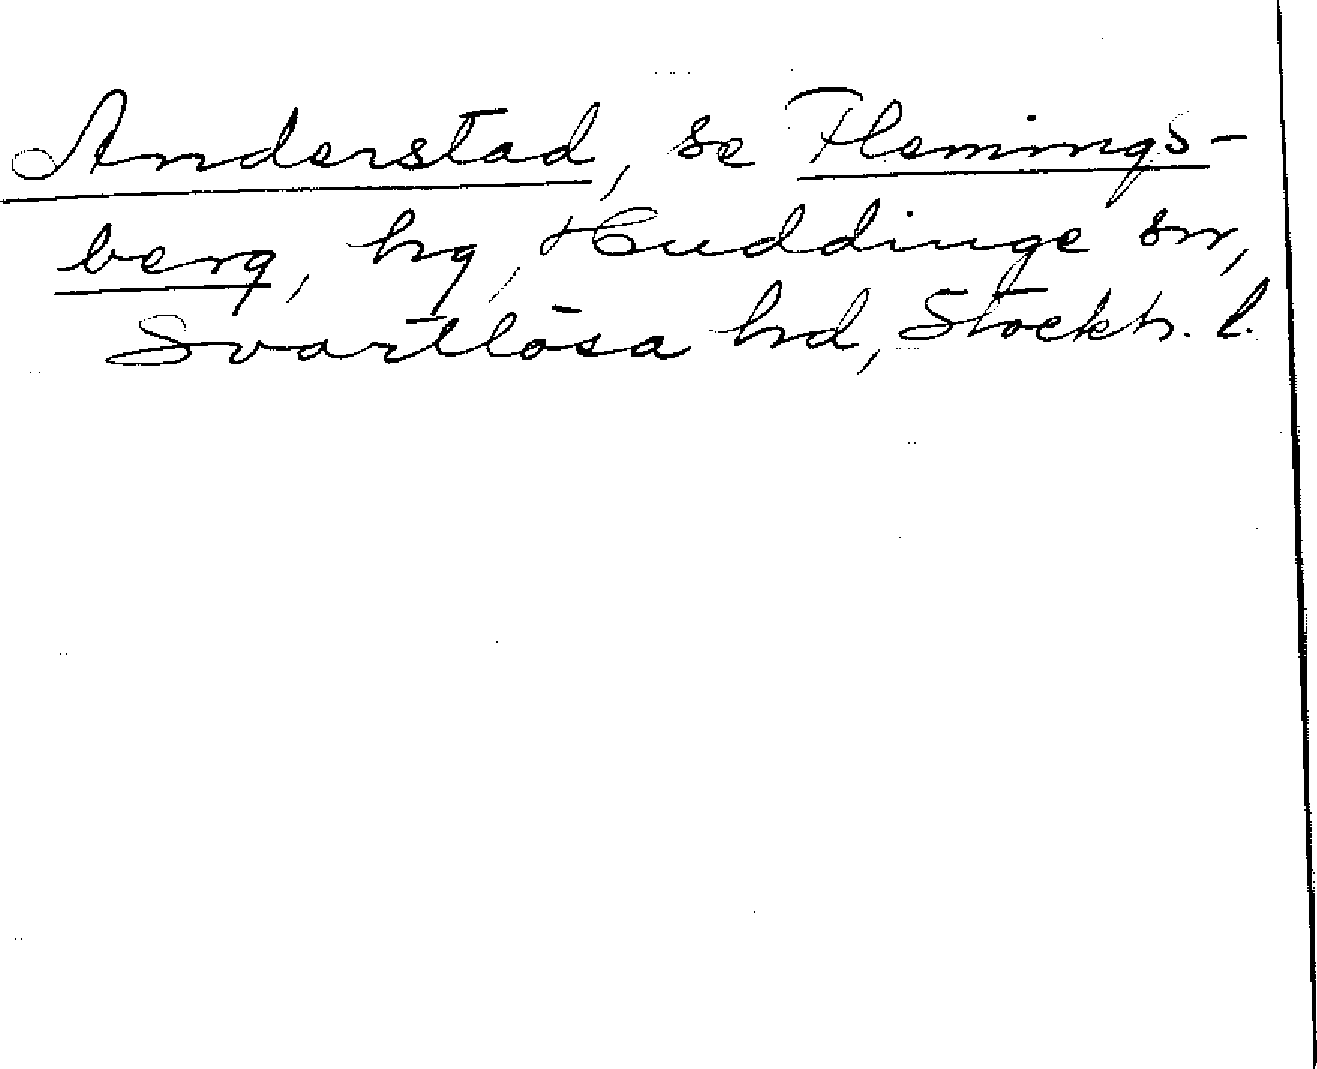 Anderstad, se Flemings-
berg, hg, Huddinge sn,
Svartlösa hd, Stockh. l.